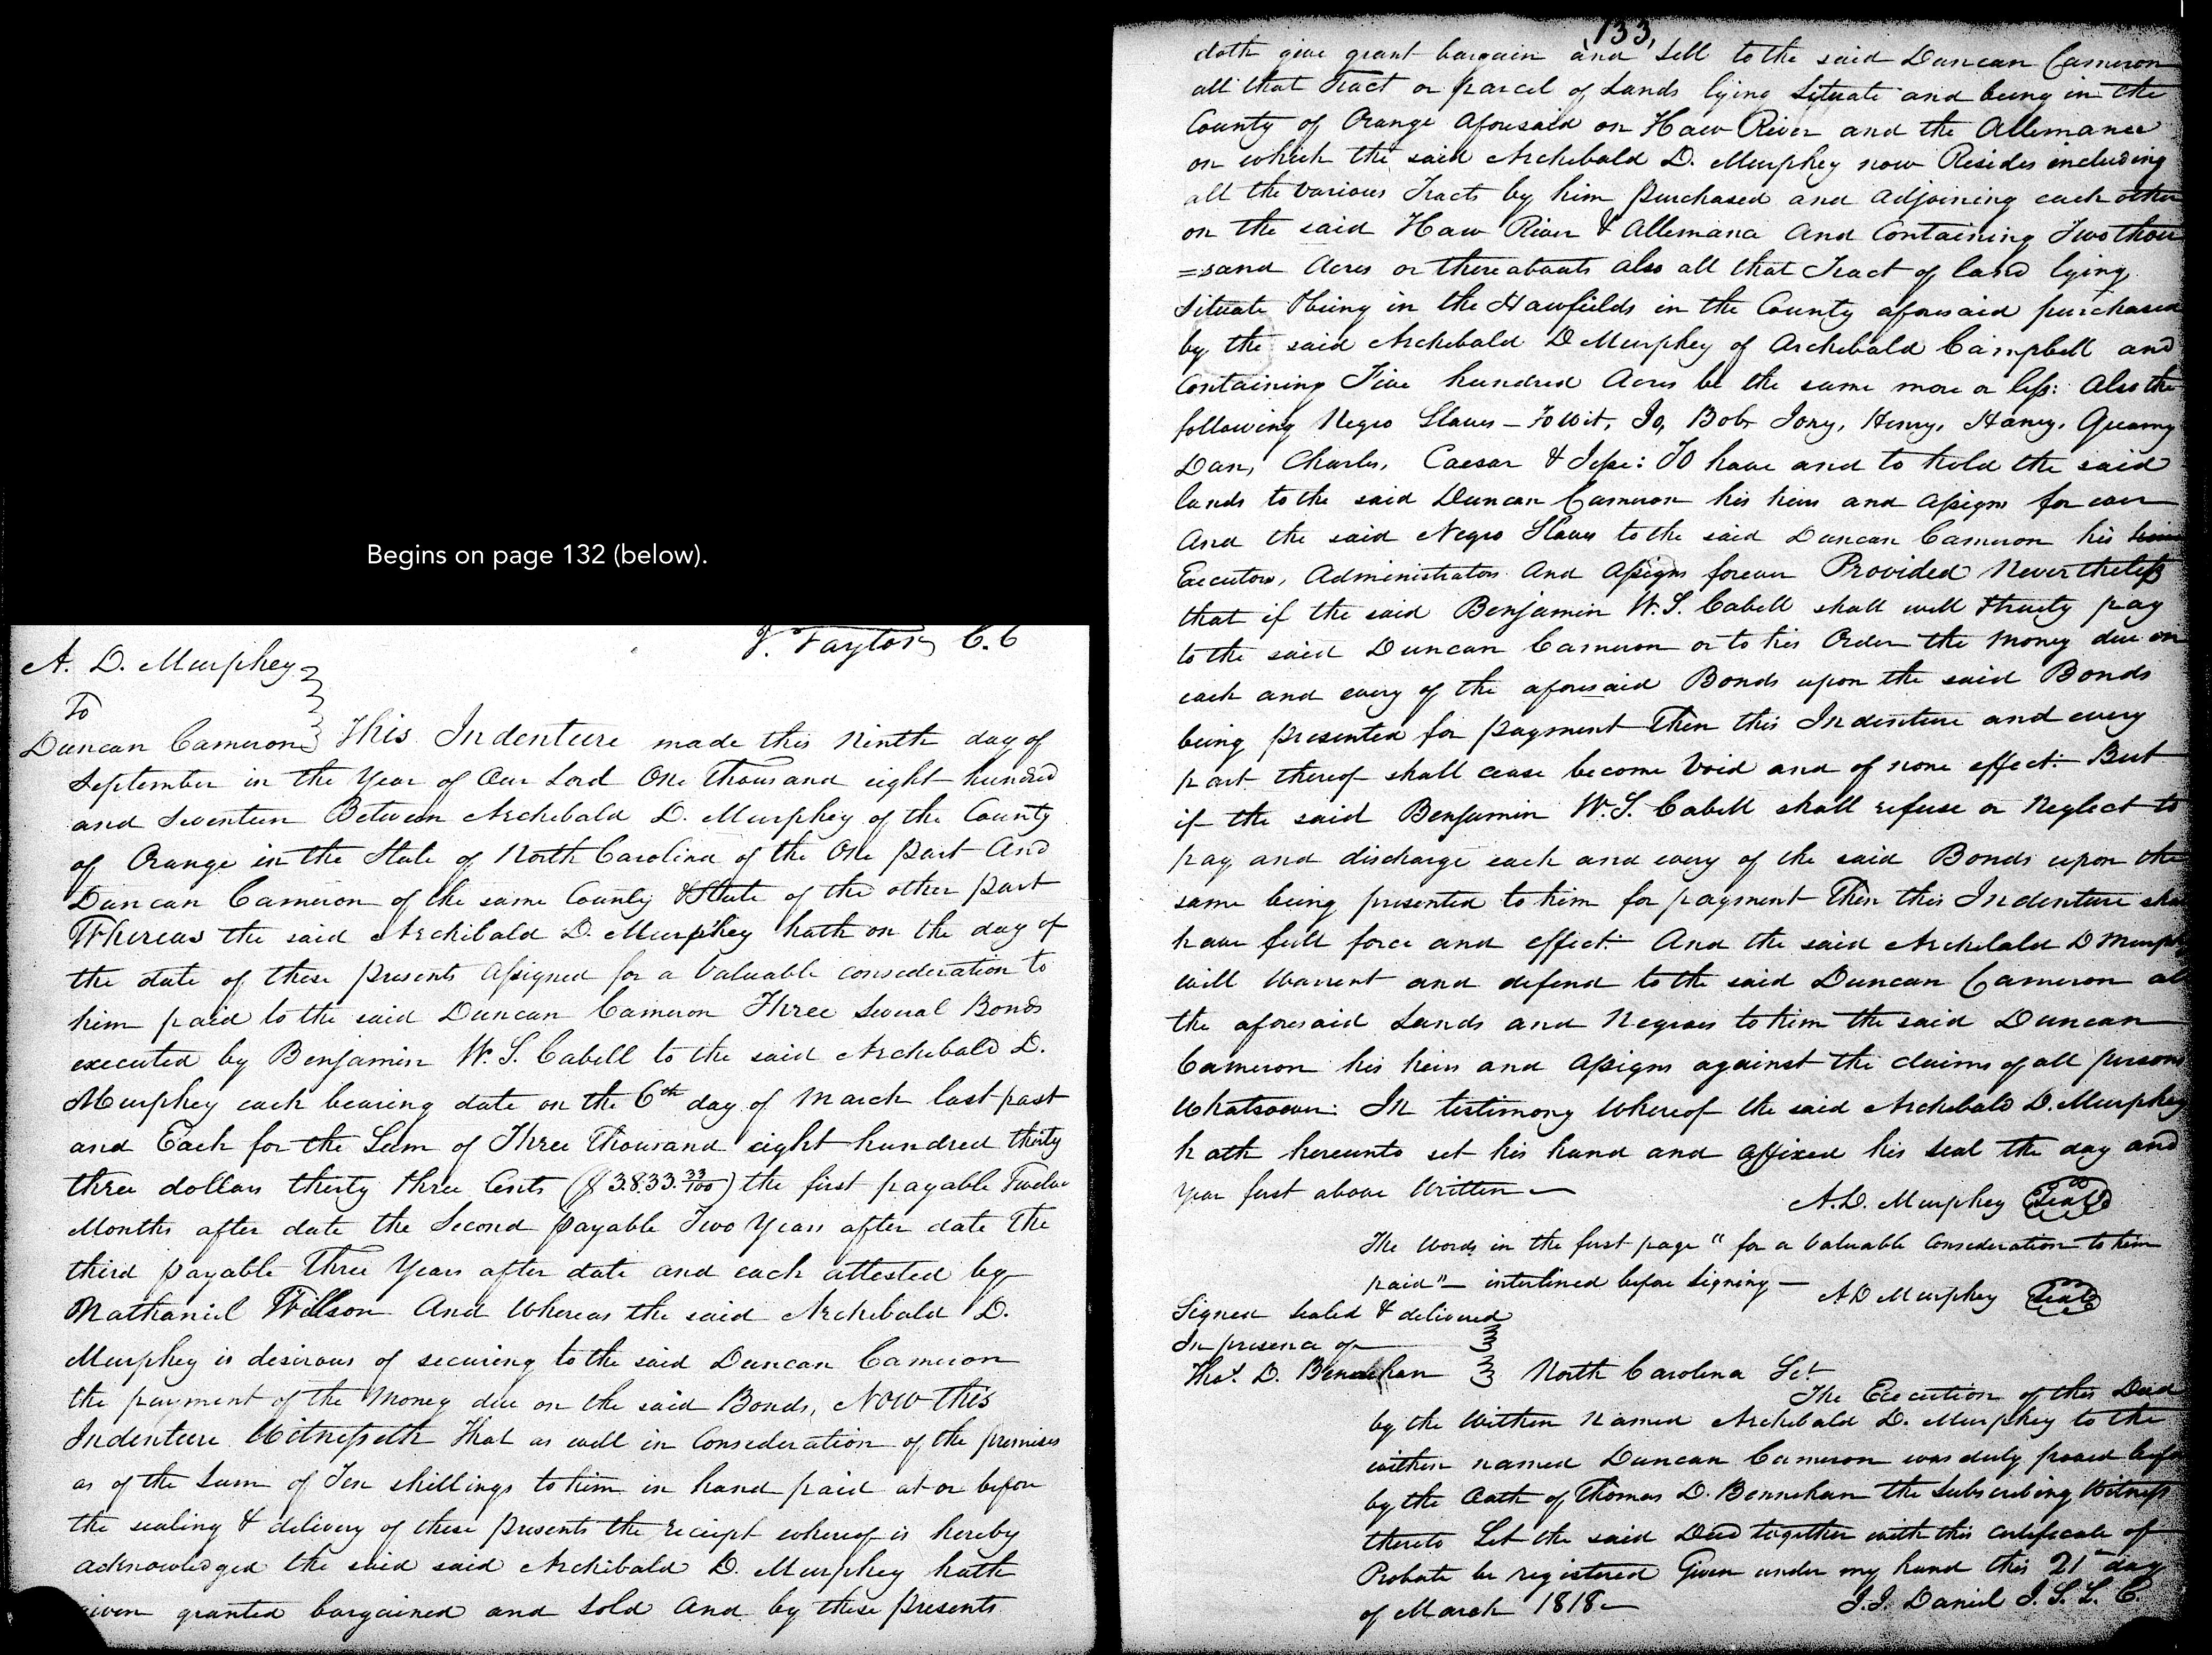 Begins on page 132 (below).
J. Taylor C.C
A. D. Murphey
To
Duncan Cameron This Indenture made this Ninth day of
September in the Year of Our Lord One Thousand eight hundred
and Seventeen Between Archibald D. Murphey of the County
of Orange in the State of North Carolina of the One part And
Duncan Cameron of the same County & State of the other part
Whereas the said Archibald D. Murphey hath on the day of
the date of these presents assigned for a Valuable consideration to
him paid to the said Duncan Cameron Three Several Bonds
executed by Benjamin W. S. Cabell to the said Archibald D.
Murphey each bearing date on the 6th day of March last past
and Each for the Sum of Three Thousand eight hundred thirty
three dollars thirty three Cents ($3833.33/100) the first payable Twelve
Months after date the Second payable Two Years after date The
third payable Three Years after date and each attested by
Nathaniel Willson And Whereas the said Archibald D.
Murphey is desirous of securing to the said Duncan Cameron
the payment of the Money due on the said Bonds, Now This
Indenture Witnesseth That as well in Consideration of the premises
as of the Sum of Ten shillings to him in hand paid at or before
the sealing & delivery of these presents the receipt whereof is hereby
acknowledged the said said Archibald D. Murphey hath
given granted bargained and Sold And by these presents
133,
doth give grant bargain and Sell to the said Duncan Cameron
all that Tract or parcel of Lands lying Situate and being in the
County of Orange aforesaid on Haw River and the Allemance
on which the said Archibald D. Murphey now Resides including
all the various Tracts by him purchased and adjoining each other
on the said Haw River & Allemana And Containing Two thou
=sand Acres or thereabouts also all that Tract of land lying
Situate & being in the Hawfields in the County aforesaid purchased
by the said Archibald D Murphey of Archibald Campbell and
Containing Five hundred Acres be the same more or less: Also the
following Negro Slaves – To Wit, Jo, Bob, Tony, Henry, Haney, Quamy
Dan, Charles, Caesar & Jesse: To have and to hold the said
lands to the said Duncan Cameron his heirs and assigns for ever
And the said Negro Slaves to the said Duncan Cameron his heirs
Executors, Administrators And Assigns forever Provided Nevertheless
that if the said Benjamin W. S. Cabell shall well & truely pay
to the said Duncan Cameron or to his Order the Money due on
each and every of the aforesaid Bonds upon the said Bonds
being presented for payment Then this Indenture and every
part thereof shall cease become Void and of none effect. But
if the said Benjamin W. S. Cabell shall refuse or Neglect to
pay and discharge each and every of the said Bonds upon the
same being presented to him for payment Then this Indenture shall
have full force and effect. And the said Archibald D Murph
will Warrent and defend to the said Duncan Cameron al
the aforesaid Lands and Negroes to him the said Duncan
Cameron his heirs and Assigns against the claims of all persons
Whatsoever: In testimony Whereof the said Archibald D. Murphey
hath hereunto set his hand and affixed his Seal the day and
Year first above Written –
A. D. Murphey Seal
The Words in the first page "for a Valuable Consideration to him
paid" – interlined before Signing –
A D Murphey Seal
Signed Sealed & delivered
In presence of
Thos. D. Bennehan North Carolina Sct
The Execution of this Deed
by the Within Named Archibald D. Murphey to the
within named Duncan Cameron was duly proved bef
by the Oath of Thomas D. Bennehan the Subscribing Witness
thereto Let the said Deed together with this certificate of
Probate be registered Given under my hand this 21st day
of March 1818 –
J. J. Daniel J. S. L. C.